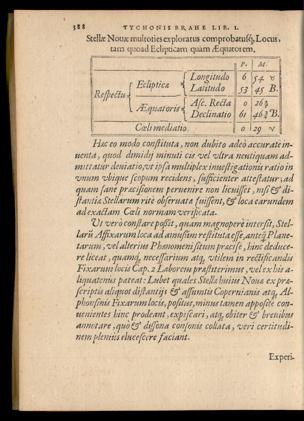 388 TYCHONIS BRAHE LIB. I.
Stellæ Novæ multoties exploratus comprobatusq́; Locus,
tam quoad Eclipticam quàm Æquatorem.
P. M.
Respectu Eclipticæ Longitudo 6 54 ♈
Latitudo 53 45 B.
Æquatoris Asc. Recta 0 26
Declinatio 61 46 B.
Cœli mediatio. 0 29 ♈
Hac eo modo constituta, non dubito adeò accurate in-
uenta, quod dimidij minuti vel vltra neutiquam ad-
mittatur deuiatio, vt ipsa multiplex inuestigationis ratio in
vnum vbique scopum recidens, sufficienter attestatur, ad
quam sane præcisionem peruenire non licuisset, nisi & di-
stantiæ Stellarum ritè obseruatæ fuissent, & loca earundem
ad exactam Cœli normam verificata.
Vt verò constare possit, quàm magnoperè intersit, Stel-
larũ Affixarum loca ad amussim restituta esse, anteq̃ Plane-
tarum, vel alterius Phænomeni situm præcise, hinc deduce-
re liceat, quamq́; necessarium atq́; vtilem in rectificandis
Fixarum locis Cap. 2 Laborem præstiterimus, vel ex his a-
liquatenus pateat: Lubet quales Stellæ huius Novæ ex præ-
scriptis aliquot distantijs & assumtis Copernianis atq́; Al-
phonsinis Fixarum locis, positus, minus tamen apposite con-
uenientes hinc prodeant, expiscari, atq́; obiter & breuibus
annotare, quò & dissona consonis collata, veri certitudi-
nem plenius elucescere faciant.
Experi-